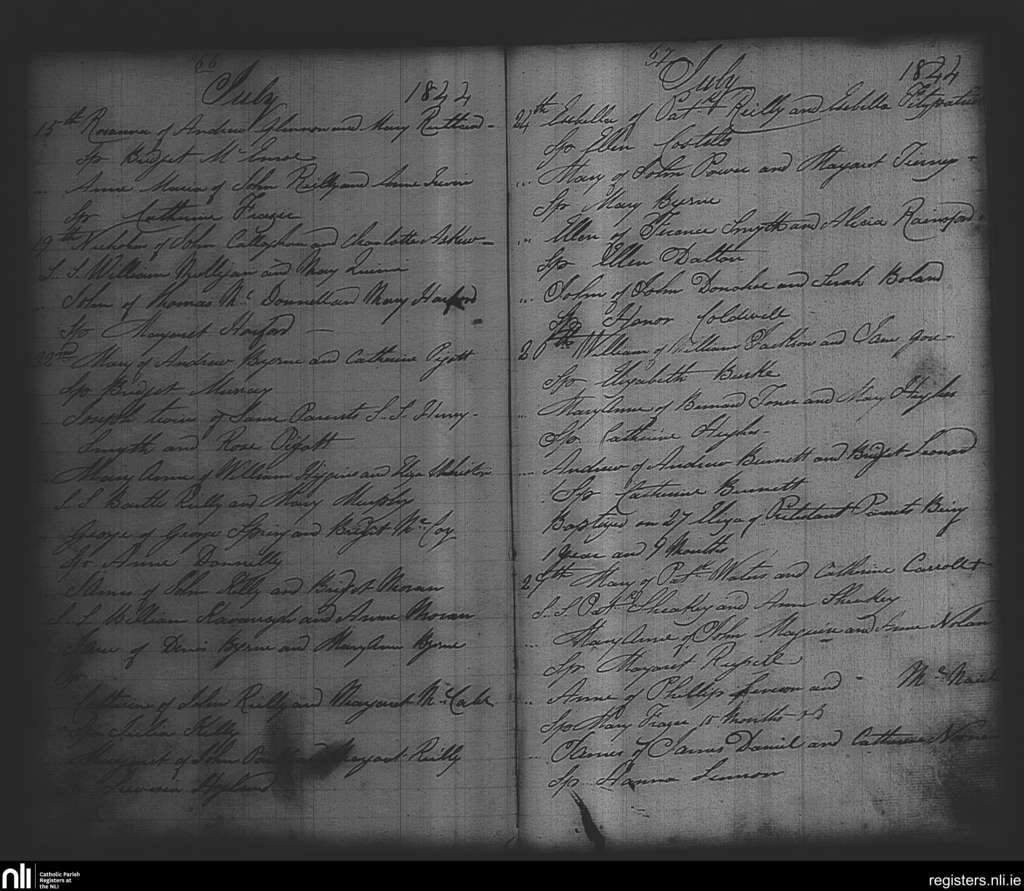 66
July 1844
15th Rosanna of Andrew Glennon and Mary
Sp Bridget McEnroe
" Anne Maria of John Reilly and Anne Irwin
Sp Catherine Frazer
19th Nicholas of John Callaghan and Charlotte Askew
S.S. William Molligan and Mary Quinn
" John of Thomas McDonnell and Mary Harford
Sp Margaret Harford
22nd Mary of Andrew Byrne and Catherine Pyott
Sp Bridget Murray
Joseph twin of Same Parents S.S. Henry
Smyth and Rose Pyott
Mary Anne of William Higgins and Eliza
S.S. Bartle Reilly and Mary Murphy
George of George Spring and Bridget McCoy
Sp Anne Donnelly
James of John Kelly and Bridget Moran
S.S. William Kavanagh and Anne Moran
Jane of Denis Byrne and Mary Anne Byrne
Sp
Catherine of John Reilly and Margaret McCabe
Sp Julia Kelly
Margaret of John and Margaret Reilly
Hyland
67
July 1844
24th Esebella of Patk Reilly and Esebella Fitzpatrick
Sp Ellen Costello
" Mary of John Power and Margaret Tierney
Sp Mary Byrne
" Ellen of Terence Smyth and Alicia Rainsford
Sp Ellen Dalton
" John of John Donohoe and Sarah Boland
Sp Honor Coldwell
William of William Jackson and Jane
Sp Elizabeth Burke
" Mary Anne of Bernard Toner and Mary Hughes
Sp Catherine Hughes
" Andrew of Andrew Bennett and Bridget Leonard
Sp Catherine Bennett
Baptized on 27 Eliza of Protestant Parents Being
1 year and 9 Months
29th Mary of Patk Waters and Catherine Carroll
S.S. Patk Sheakey and Anne Sheakey
" Mary Anne of John Maguire and Anne Nolan
Sp Margaret Russell
" Anne of Phillip Lennon and McNa
Sp Mary Frazer 10 Months
" James of James Daniel and Catherine
Sp Hanna Lennon
nli Catholic Parish
Registers at
the NLI
registers.nli.ie